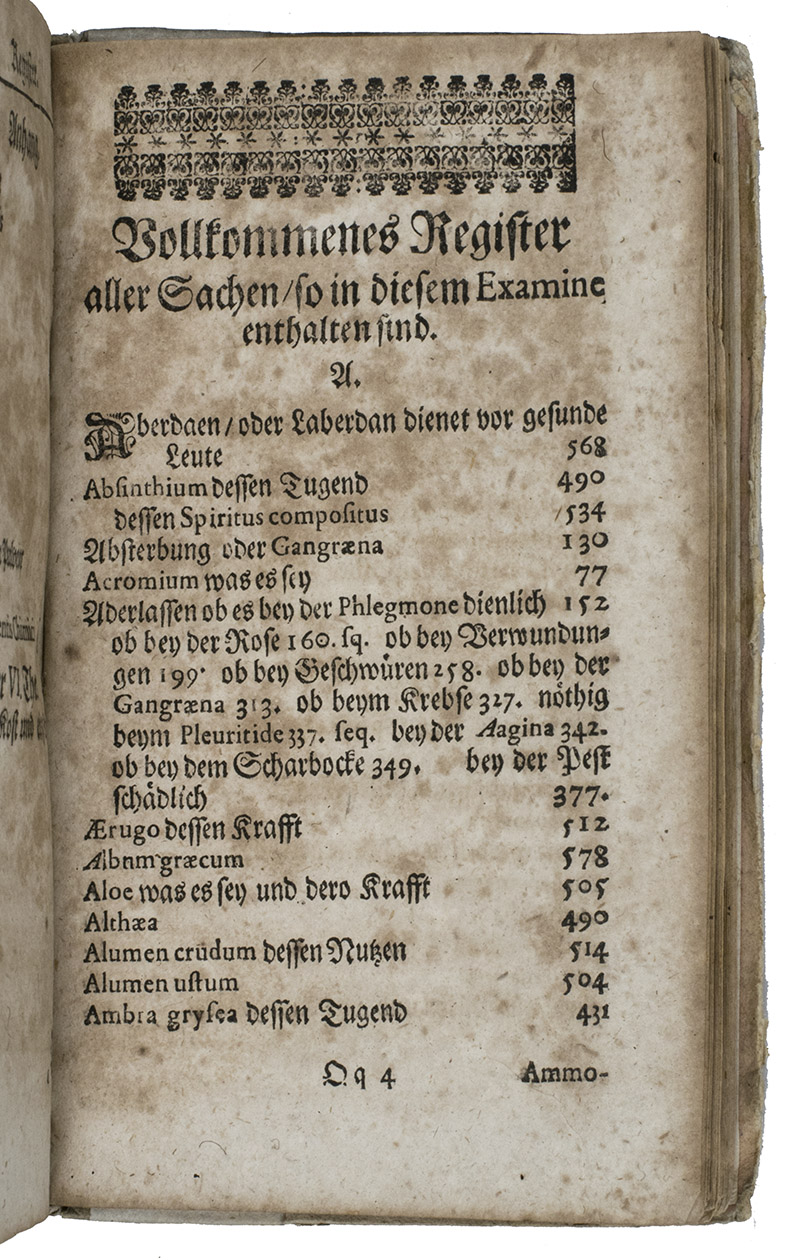 Vollkommenes Register
aller Sachen/so in diesem Examine
enthalten sind.
A.
Aberdaen/oder Laberdan dienet vor gesunde
Leute 568
Absinthium dessen Tugend 490
dessen Spiritus compositus 534
Absterbung oder Gangræna 130
Acromium was es sey 77
Aderlassen ob es bey der Phlegmone dienlich 152
ob bey der Rose 160. sq. ob bey Verwundun-
gen 199. ob bey Geschwüren 258. ob bey der
Gangræna 313. ob beym Krebse 327. nöthig
beym Pleuritide 337. seq. bey der Aagina 342.
ob bey dem Scharbocke 349. bey der Pest
schädlich 377.
Ærugo dessen Krafft 512
Albnm græcum 578
Aloe was es sey und dero Krafft 505
Althæa 490
Alumen crüdum dessen Nutzen 514
Alumen ustum 504
Ambra grysea dessen Tugend 431
Qq 4 Ammo-